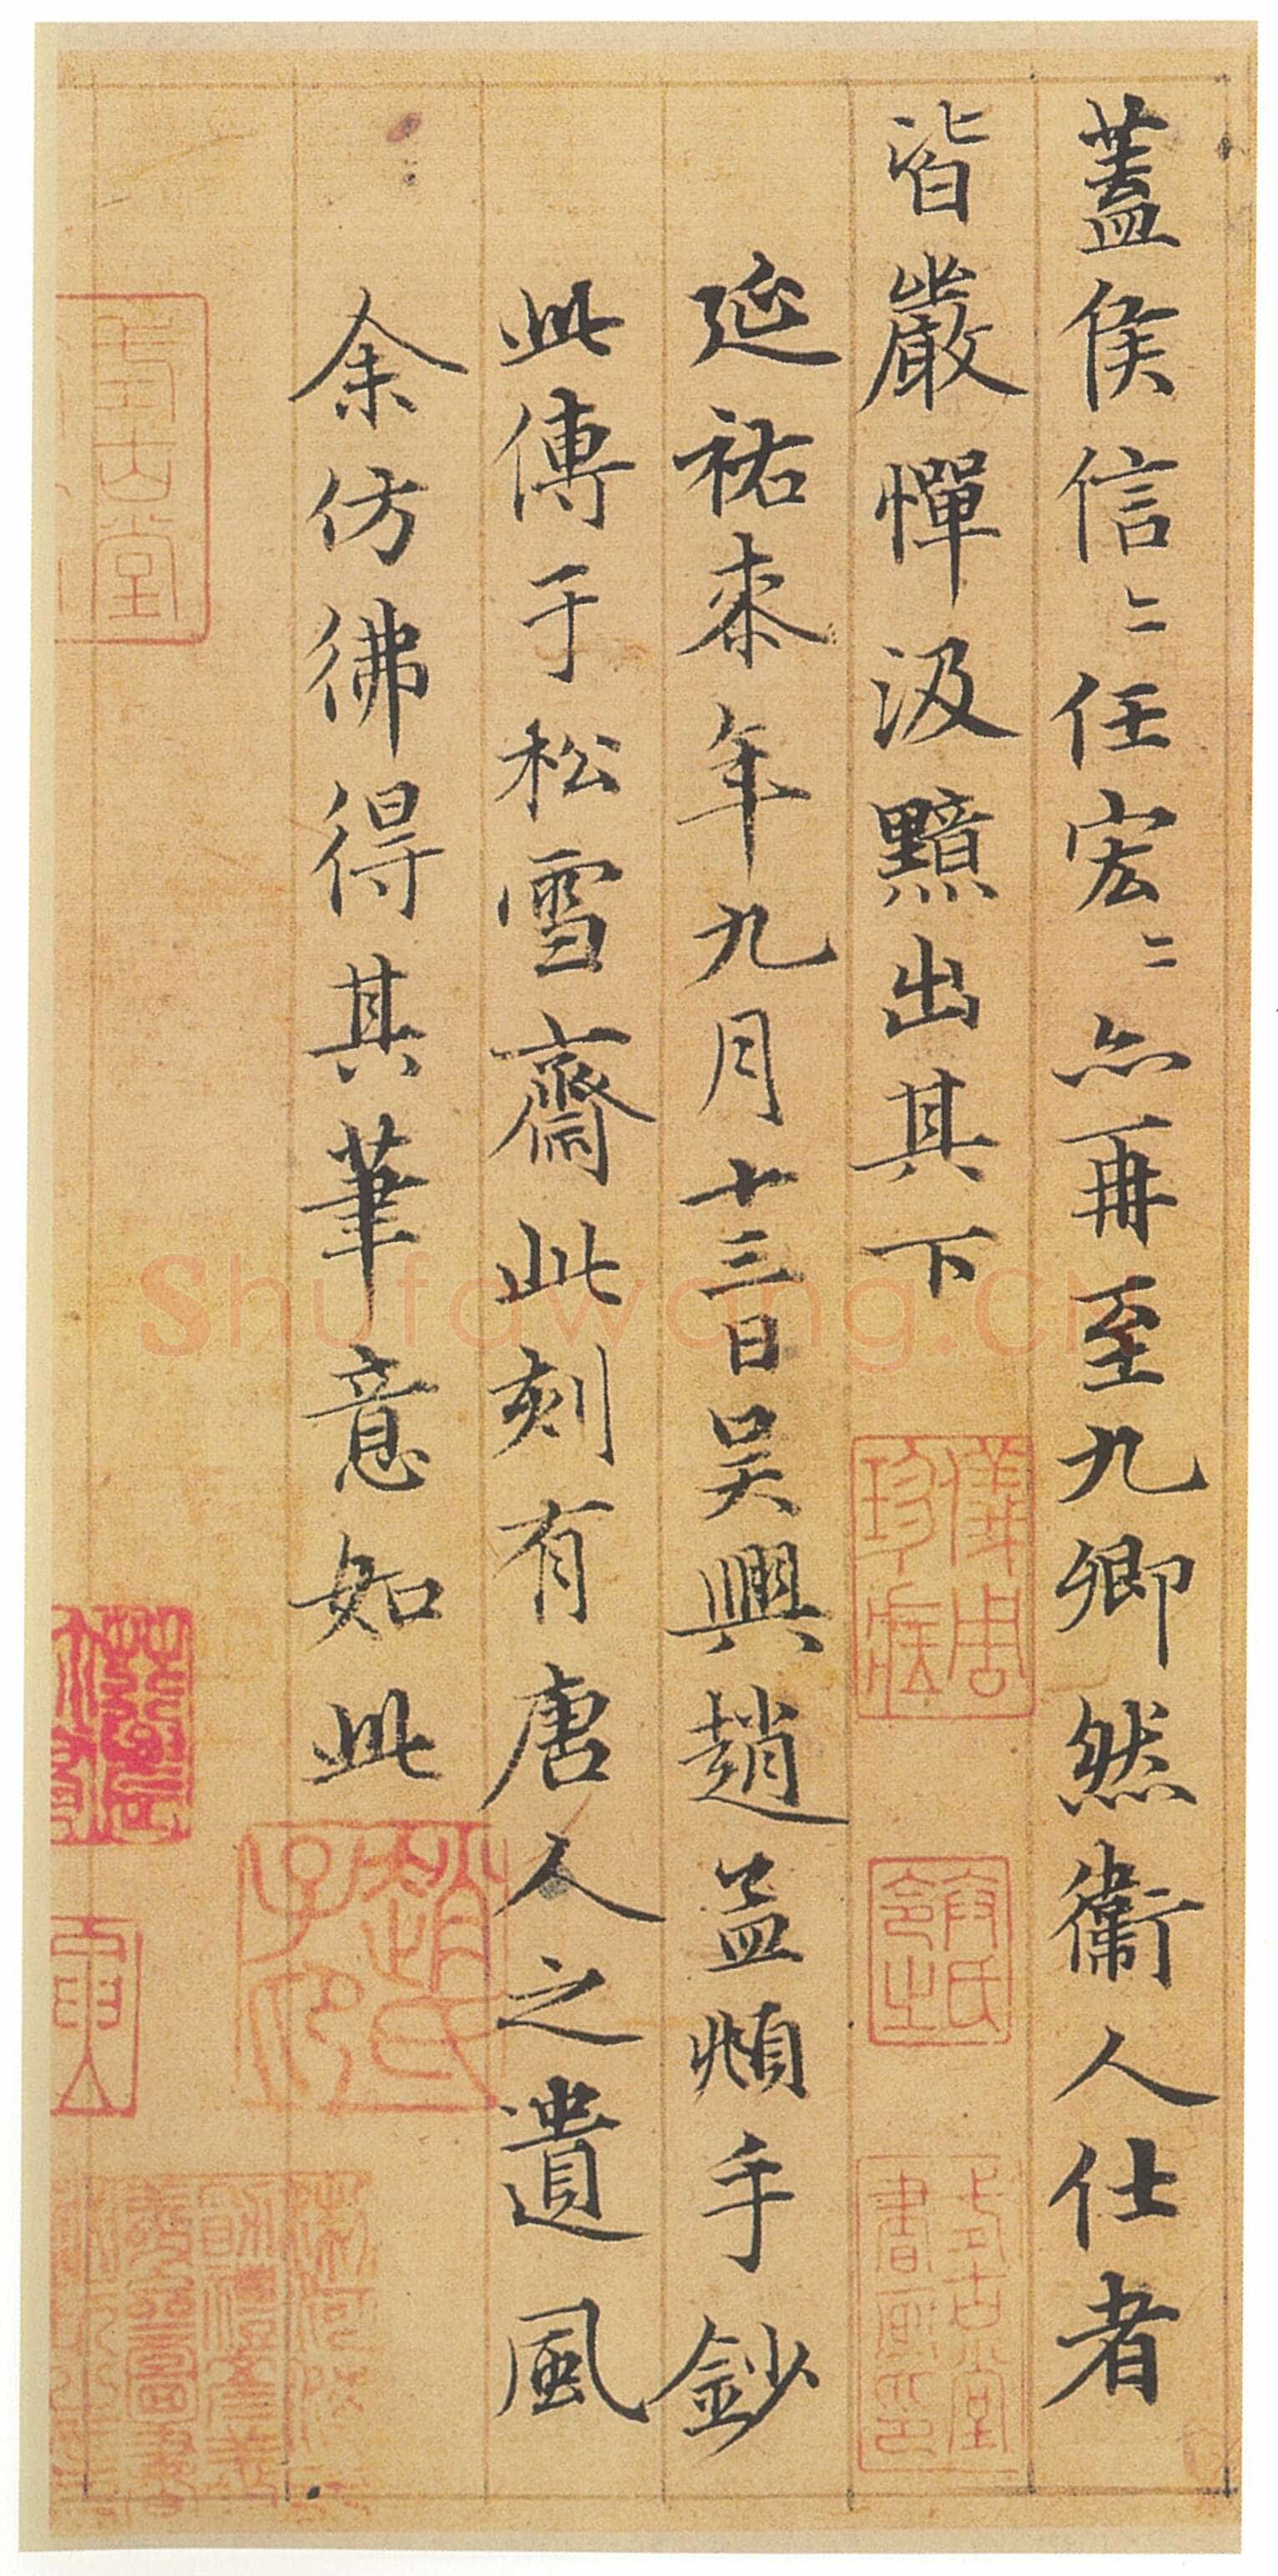 蓋侯信〻任宏〻亦再至九卿然衞人仕者
皆嚴憚汲黯出其下
延祐柒年九月十三日吴興趙孟頫手鈔
此傳于松雪齋此刻有唐人之遺風
余仿彿得其筆意如此
儀周珍藏
趙氏子昂
Shufawang.cn